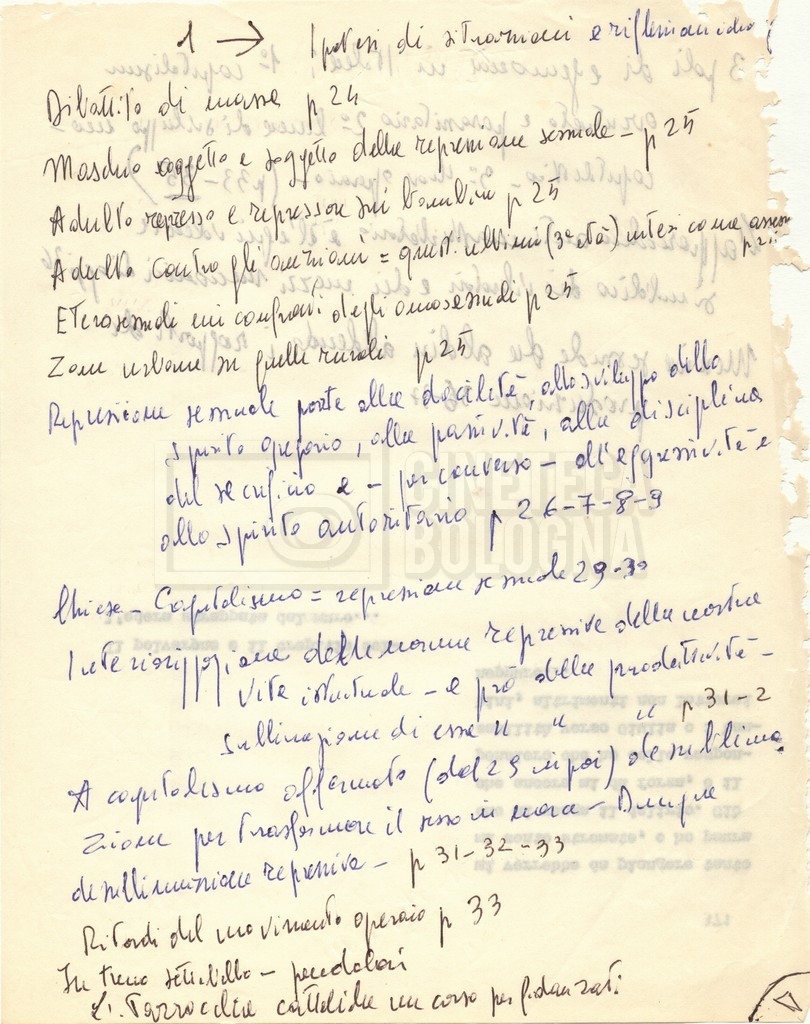 1 → Ipotesi di situazioni e riflessioni
Dibattito di massa p 24
Maschio oggetto e soggetto della repressione sessuale – p 25
Adulto represso e repressore sui bambini p 25
Adulto contro gli anziani = quest. ultimi (3ª età) intesi come
p 25
Eterosessuali nei confronti degli omosessuali p 25
Zone urbane su quelle rurali p 25
Repressione sessuale porta alla docilità, allo sviluppo dello
spirito gregario, alla passività, alla disciplina
del sacrificio e – per converso – all'aggressività e
allo spirito autoritario p 26-7-8-9
CINETECA
BOLOGNA
Chiesa – Capitalismo = repressione sessuale 29-30
Interiorizzazione delle norme repressive della nostra
vita istintuale – e pro della produttività –
sublimazione di esse " " " p 31-2
A capitalismo affermato (dal 29 in poi) desublima
zione per trasformare il sesso in merce – Dunque
desublimazione repressiva – p 31-32-33
Ritardi del movimento operaio p 33
In treno settebello – pendolari
cattoliche un corso per fidanzati